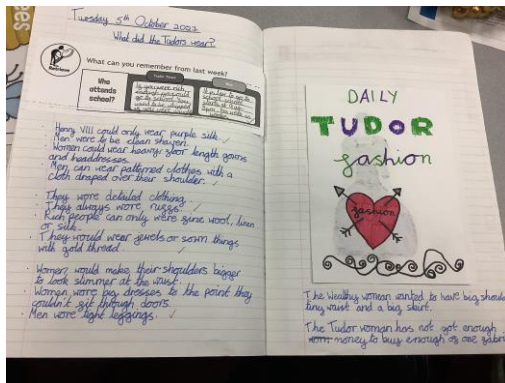 Tuesday 5th October 2002
What did the Tudors wear?
What can you remember from last week?
Who attends school?
Henry VIII could only wear purple silk.
Men were to be clean shaven.
Women could wear heavy, floor length gowns
and headdresses.
Men can wear patterned clothes with a
cloth draped over their shoulder.
They wore detailed clothing.
They always wore ruffs.
Rich people can only were fine wool, linen
or silk.
They would wear jewels or sown things
with gold thread.
Women would make their shoulders bigger
to look slimmer at the waist.
Women wore big dresses to the point they
couldn't get through doors.
Men wore tight leggings.
DAILY
TUDOR
fashion
fashion
The Wealthy woman wanted to have big
tiny waist and a big skirt.
The Tudor woman has not got enough
money to buy enough of one